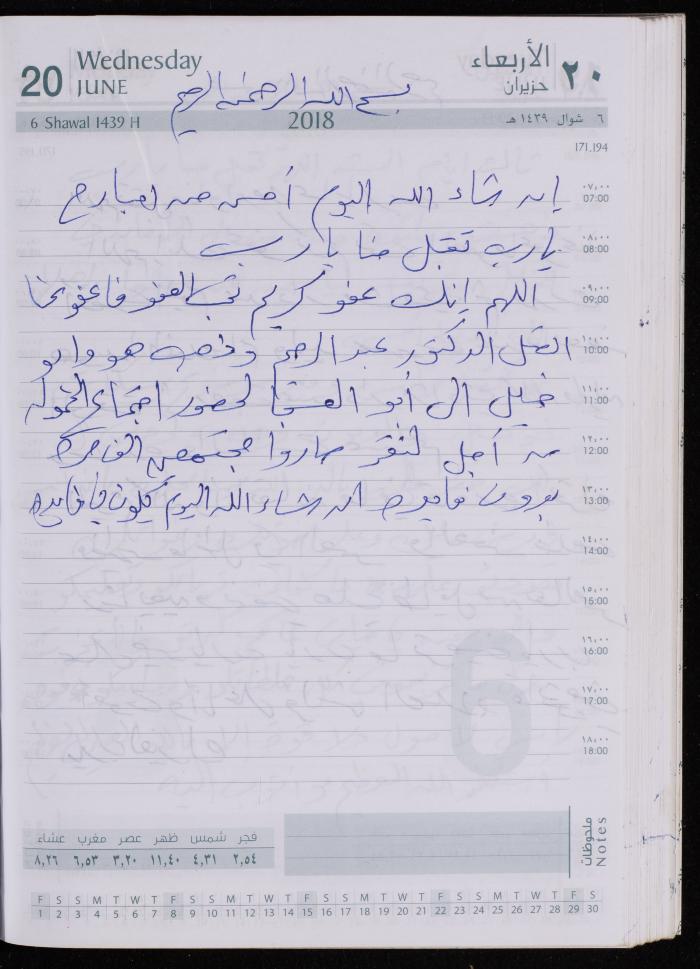 20 Wednesday JUNE الأربعاء حزيران ٢٠
بسم الله الرحمن الرحيم
6 Shawal 1439 H 2018 ٦ شوال ١٤٣٩ هـ
171.194
٠٧,٠٠ 07:00 إن شاء الله اليوم أحسن من امبارح
٠٨,٠٠ 08:00 يارب تقبل منا يا رب
٠٩,٠٠ 09:00 اللهم إنك عفو كريم تحب العفو فاعفو عنا
١٠,٠٠ 10:00 اتصل الدكتور عبد الرحيم وذهب هو وابو
١١,٠٠ 11:00 خليل الى أبو العبد لحضور اجتماع الحمولة
١٢,٠٠ 12:00 من أجل صاروا مجتمعين الف مرة
١٣,٠٠ 13:00 بدون فايده ان شاء الله اليوم يكون فيا فايده
١٤,٠٠ 14:00
١٥,٠٠ 15:00
١٦,٠٠ 16:00
١٧,٠٠ 17:00
١٨,٠٠ 18:00
6
ملحوظات Notes
فجر شمس ظهر عصر مغرب عشاء
٢,٥٤ ٤,٣١ ١١,٤٠ ٣,٢٠ ٦,٥٣ ٨,٢٦
F S S M T W T F S S M T W T F S S M T W T F S S M T W T F S
1 2 3 4 5 6 7 8 9 10 11 12 13 14 15 16 17 18 19 20 21 22 23 24 25 26 27 28 29 30